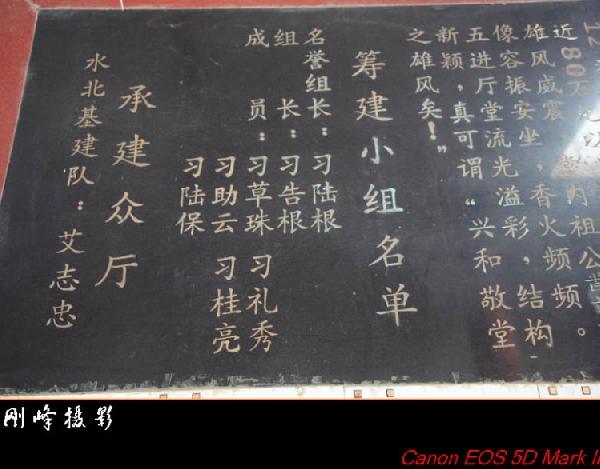 近80
雄风威震,堂内祖公
像容振安坐,香火频频。
五进厅堂流光溢彩,结构
新颖,真可谓“兴和敬堂
之雄风矣!”
筹建小组名单
名誉组长:习陆根
组长:习告根
成员:习草珠 习礼秀
习助云 习桂亮
习陆保
承建众厅
水北基建队:艾志忠
刚峰摄影
Canon EOS 5D Mark